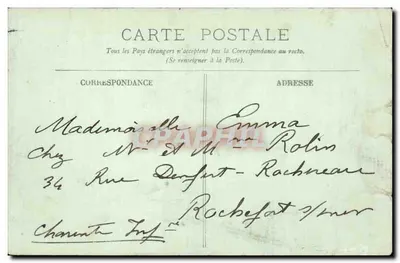 CARTE POSTALE
Tous les Pays étrangers n'acceptent pas la Correspondance au recto.
(Se renseigner à la Poste).
CORRESPONDANCE
ADRESSE
Mademoiselle Emma
Chez Mr et Mme Rolin
34 Rue Denfert-Rochereau
Rochefort s/mer
Charente Infre